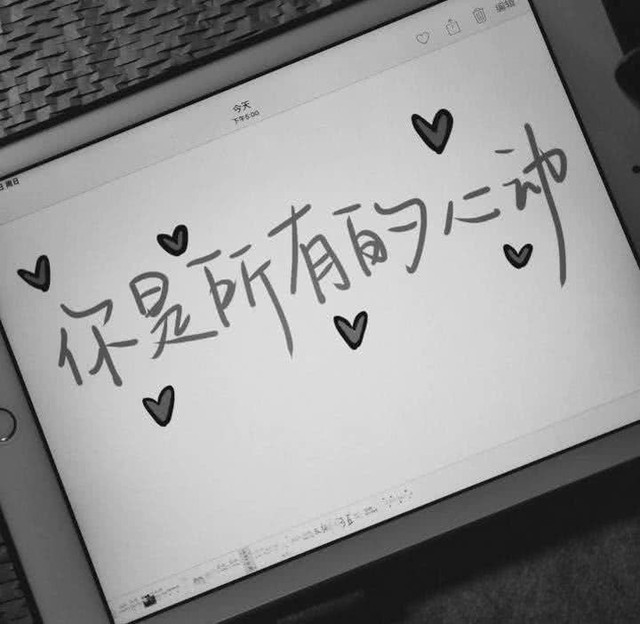 编辑
今天
下午6:00
周日
你是所有的心动